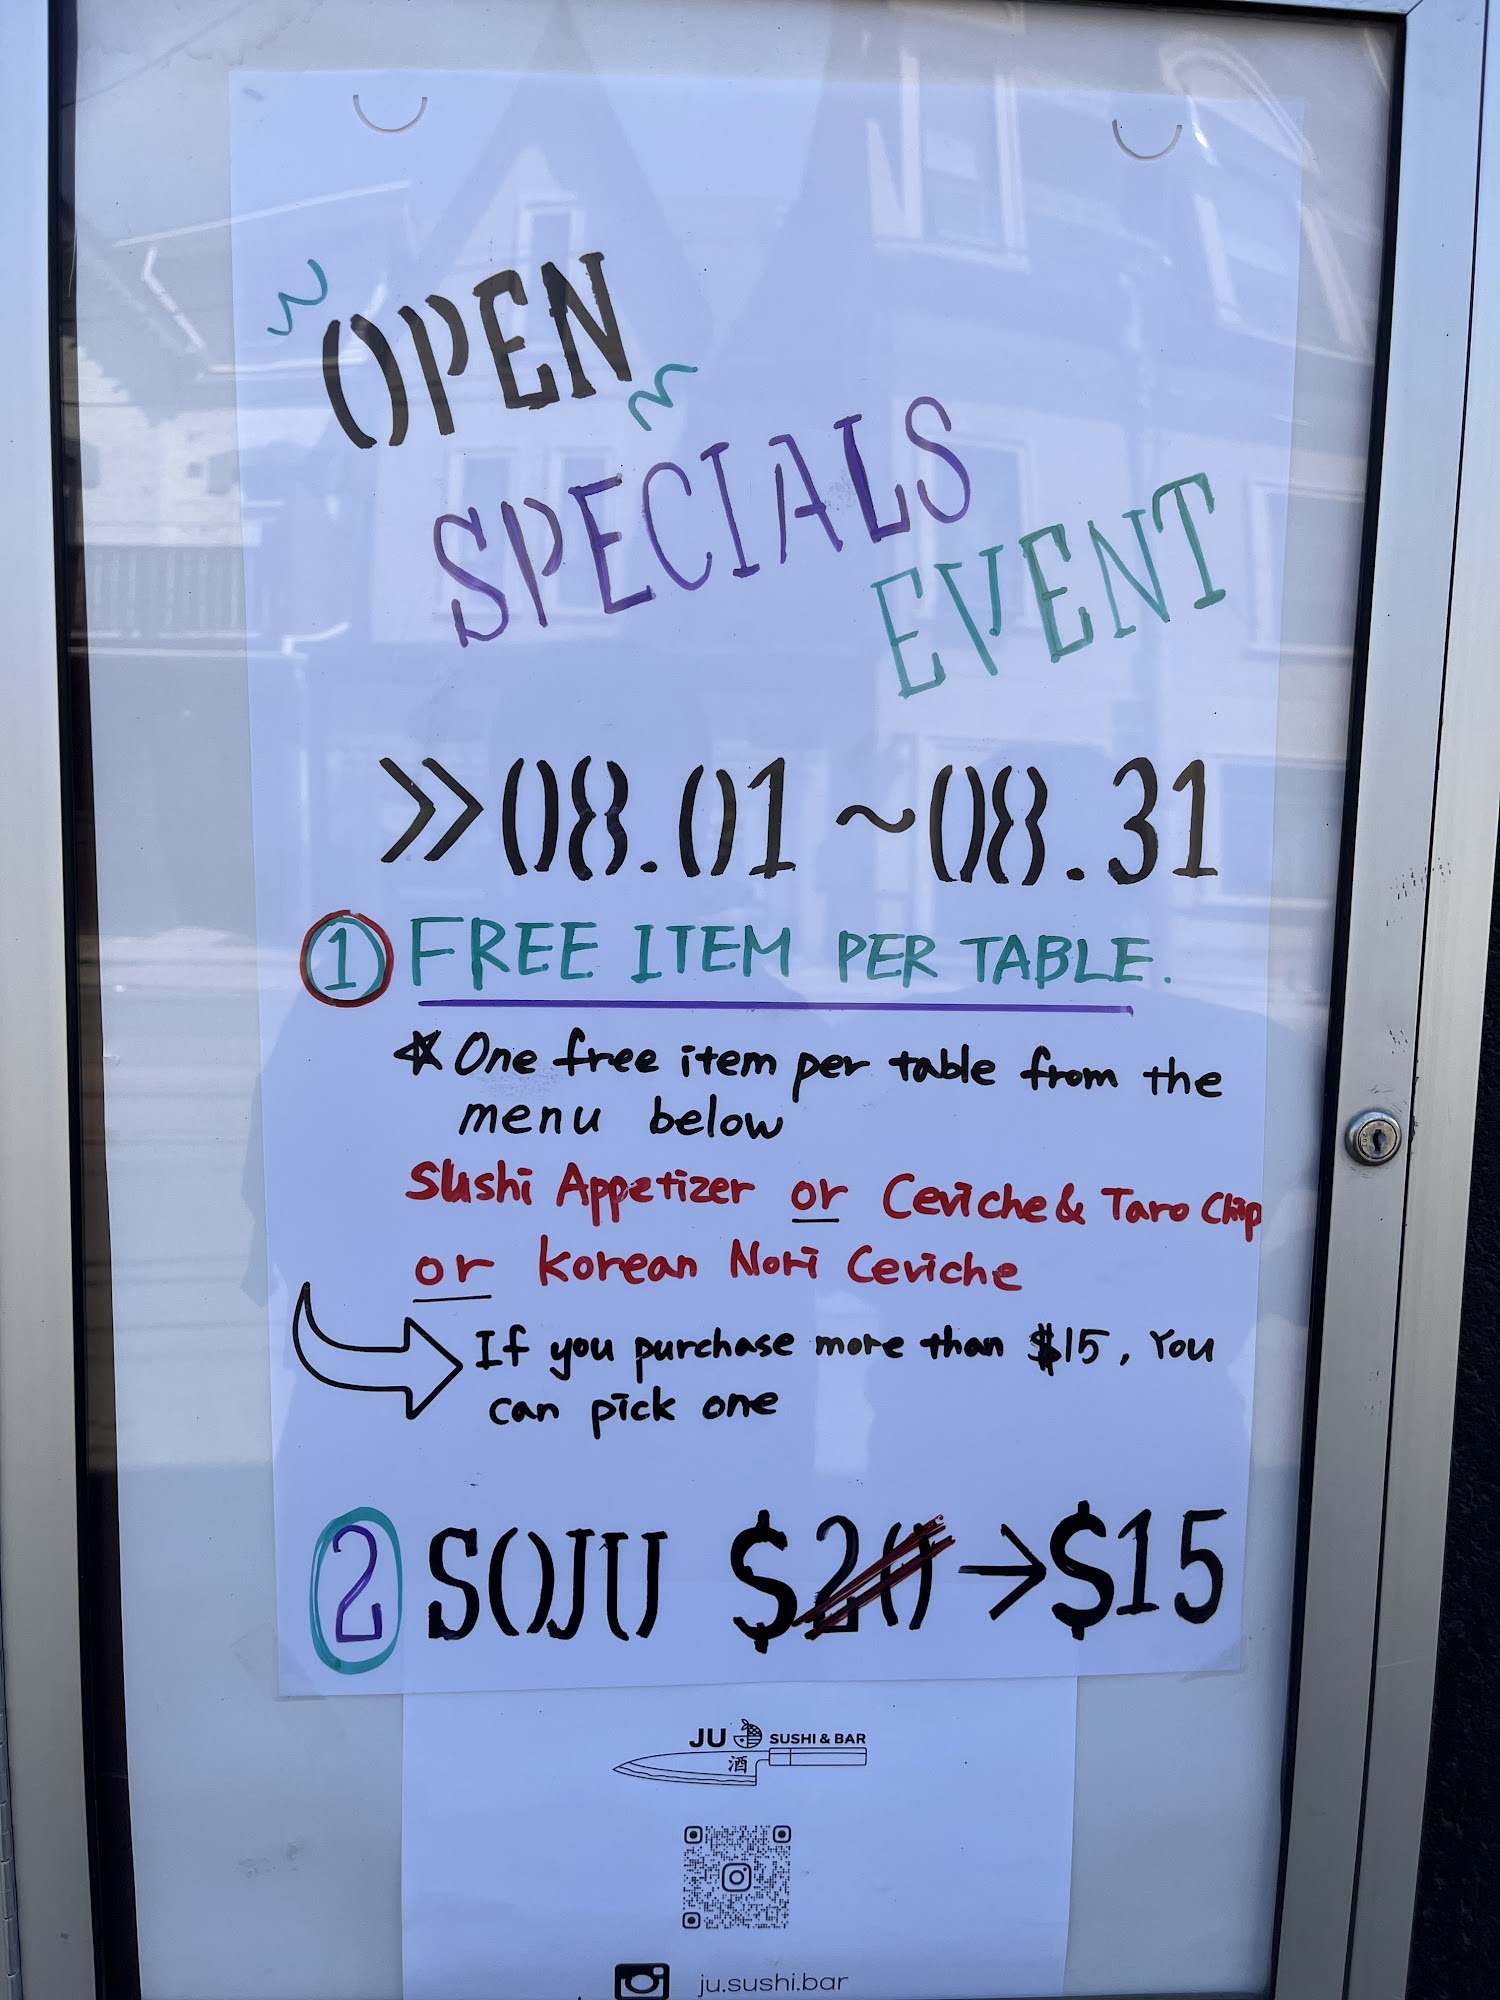 OPEN
SPECIALS
EVENT
>> 08.01 ~ 08.31
1 FREE ITEM PER TABLE.
☆ One free item per table from the
menu below
Sushi Appetizer or Ceviche & Taro Chip
or Korean Nori Ceviche
If you purchase more than $15, You
can pick one
2 SOJU $20 → $15
JU SUSHI & BAR
酒
ju.sushi.bar